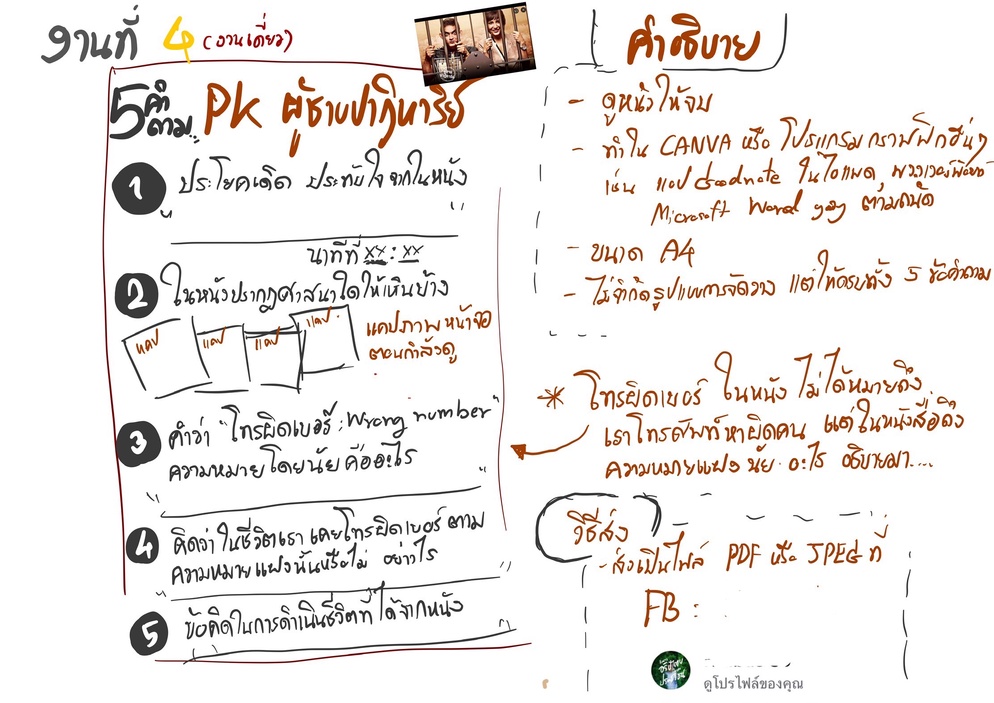 งานที่ 4 (งานเดี่ยว)
5 คำถาม.. PK ผู้ชายปาฏิหาริย์
1 ประโยคเด็ด ประทับใจจากในหนัง
" "
นาทีที่ xx : xx
2 ในหนังปรากฏศาสนาใดให้เห็นบ้าง
แคป แคป แคป แคป
แคปภาพหน้าจอ
ตอนกำลังดู
3 คำว่า "โทรผิดเบอร์ : Wrong number"
ความหมายโดยนัย คืออะไร
" "
4 คิดว่าในชีวิตเรา เคยโทรผิดเบอร์ ตาม
ความหมายแฝงนั้นหรือไม่ อย่างไร
5 ข้อคิดในการดำเนินชีวิตที่ได้จากหนัง
คำอธิบาย
- ดูหนังให้จบ
- ทำใน CANVA หรือ โปรแกรมกราฟฟิกอื่นๆ
เช่น แอป Goodnote ในไอแพด
Microsoft Word ตามถนัด
- ขนาด A4
- ไม่จำกัดรูปแบบการจัดวาง แต่ให้ครบทั้ง 5 ข้อคำถาม
* โทรผิดเบอร์ ในหนัง ไม่ได้หมายถึง
เราโทรศัพท์หาผิดคน แต่ในหนังสื่อถึง
ความหมายแฝงนัย อะไร อธิบายมา....
วิธีส่ง
- ส่งเป็นไฟล์ PDF หรือ JPEG ที่
FB :
ดูโปรไฟล์ของคุณ